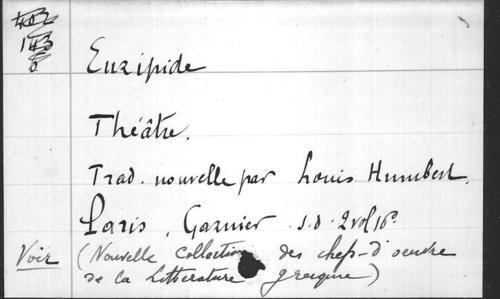 Euripide
Théâtre.
Trad. nouvelle par Louis Humbert.
Paris, Garnier s.d. 2 vol 16º
Voir (Nouvelle Collection des chefs-d'oeuvre
de la littérature grecque)